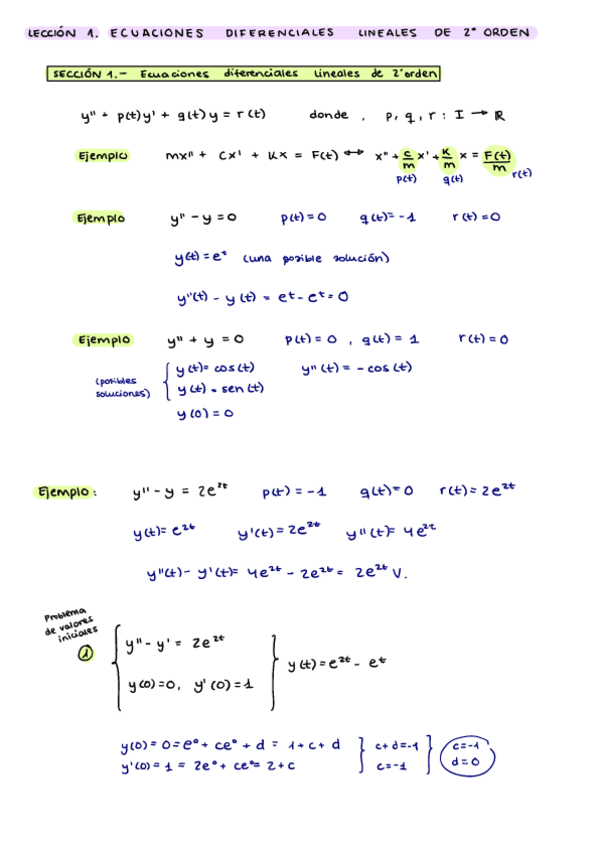 LECCIÓN 1. ECUACIONES DIFERENCIALES LINEALES DE 2º ORDEN
SECCIÓN 1.- Ecuaciones diferenciales lineales de 2ºorden
y'' + p(t)y' + q(t)y = r(t) donde, p, q, r : I → ℝ
Ejemplo mx'' + cx' + kx = F(t) ↔ x'' + c/m x' + k/m x = F(t)/m
p(t) q(t) r(t)
Ejemplo y'' - y = 0 p(t) = 0 q(t) = -1 r(t) = 0
y(t) = eᵗ (una posible solución)
y''(t) - y(t) = eᵗ - eᵗ = 0
Ejemplo y'' + y = 0 p(t) = 0, q(t) = 1 r(t) = 0
(posibles soluciones) { y(t) = cos(t) y''(t) = -cos(t)
y(t) = sen(t)
y(0) = 0
Ejemplo: y'' - y = 2e²ᵗ p(t) = -1 q(t) = 0 r(t) = 2e²ᵗ
y(t) = e²ᵗ y'(t) = 2e²ᵗ y''(t) = 4e²ᵗ
y''(t) - y'(t) = 4e²ᵗ - 2e²ᵗ = 2e²ᵗ V.
Problema
de valores
iniciales
1
{ y'' - y' = 2e²ᵗ
y(0) = 0, y'(0) = 1 } y(t) = e²ᵗ - eᵗ
y(0) = 0 = e⁰ + ce⁰ + d = 1 + c + d } c + d = -1 } c = -1
y'(0) = 1 = 2e⁰ + ce⁰ = 2 + c } c = -1 } d = 0